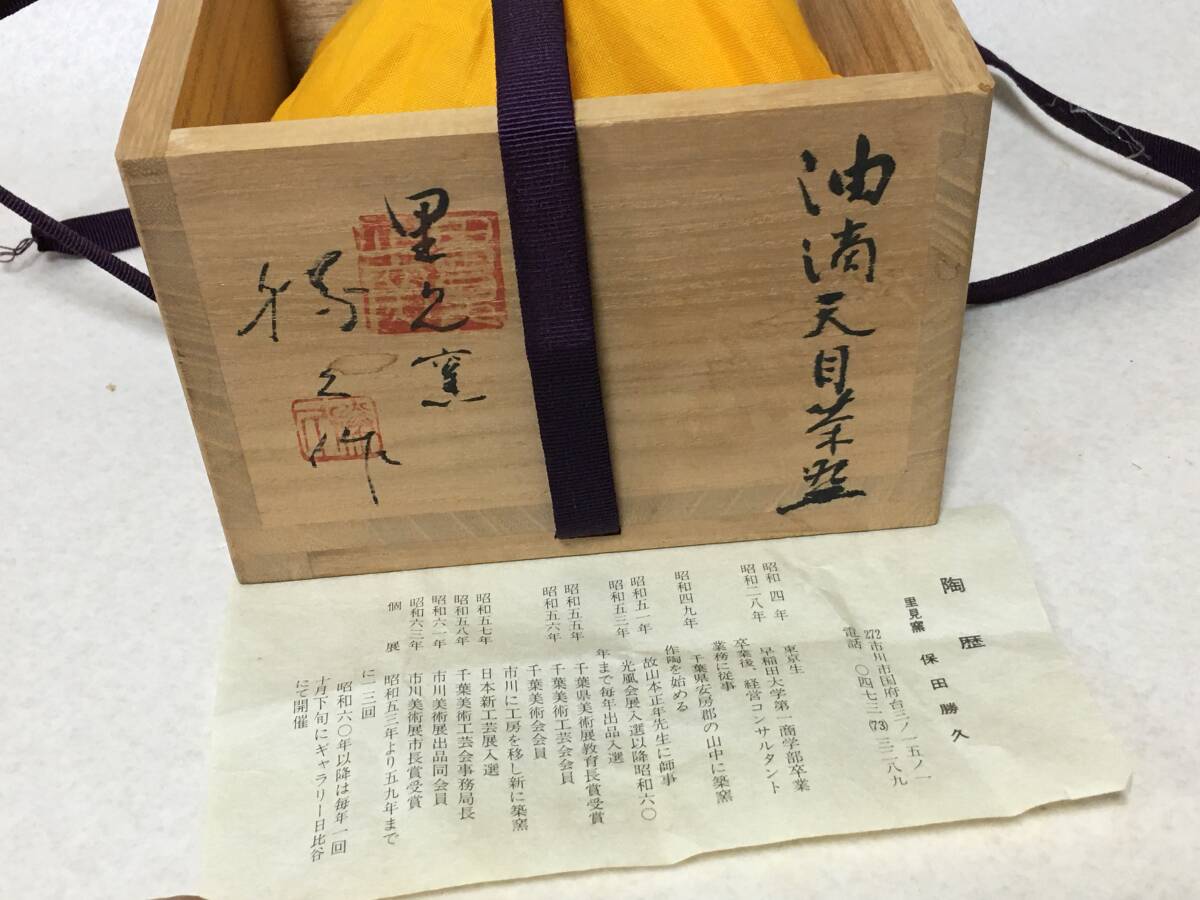 油滴天目茶盌
里久窯
勝久作
陶歴
里見窯 保田勝久
272市川市国府台三ノ一五ノ一
電話 〇四七三(73)三二八九
昭和四年 東京生
昭和二八年 早稲田大学第一商学部卒業
卒業後、経営コンサルタント
業務に従事
昭和四九年 千葉県安房郡の山中に築窯
作陶を始める
昭和五一年 故山本正年先生に師事
昭和五三年 光風会展入選以降昭和六〇
年まで毎年出品入選
昭和五五年 千葉県美術展教育長賞受賞
昭和五六年 千葉美術工芸会会員
千葉美術会会員
市川に工房を移し新に築窯
昭和五七年 日本新工芸展入選
昭和五八年 千葉美術工芸会事務局長
昭和六一年 市川美術展出品同会員
昭和六三年 市川美術展市長賞受賞
個展 昭和五三年より五九年まで
に一三回
昭和六〇年以降は毎年一回
十月下旬にギャラリー日比谷
にて開催